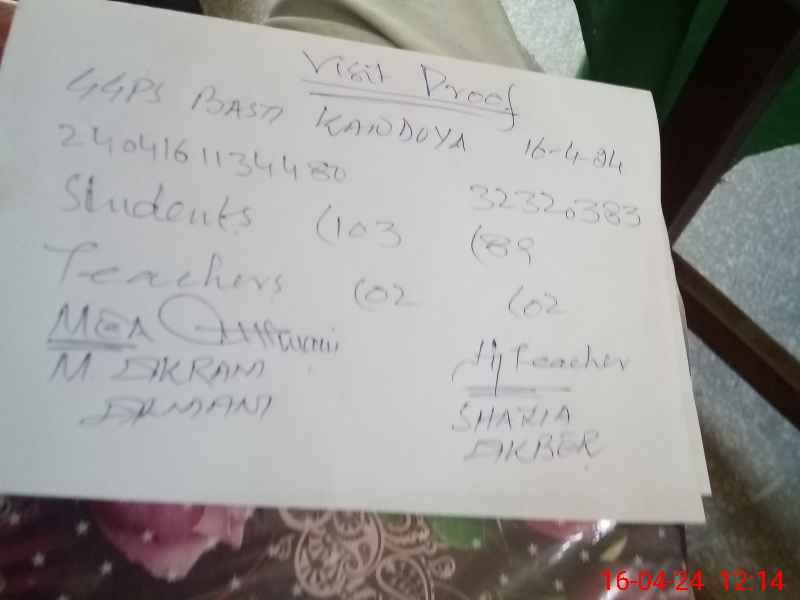 Visit Proof
GGPS BASTI KANDOYA 16-4-24
2404161134480 32320383
Students (103 (89
Teachers (02 (02
MEA
H/Teacher
M. IKRAM
SHAZIA
AKBER
16-04-24 12:14